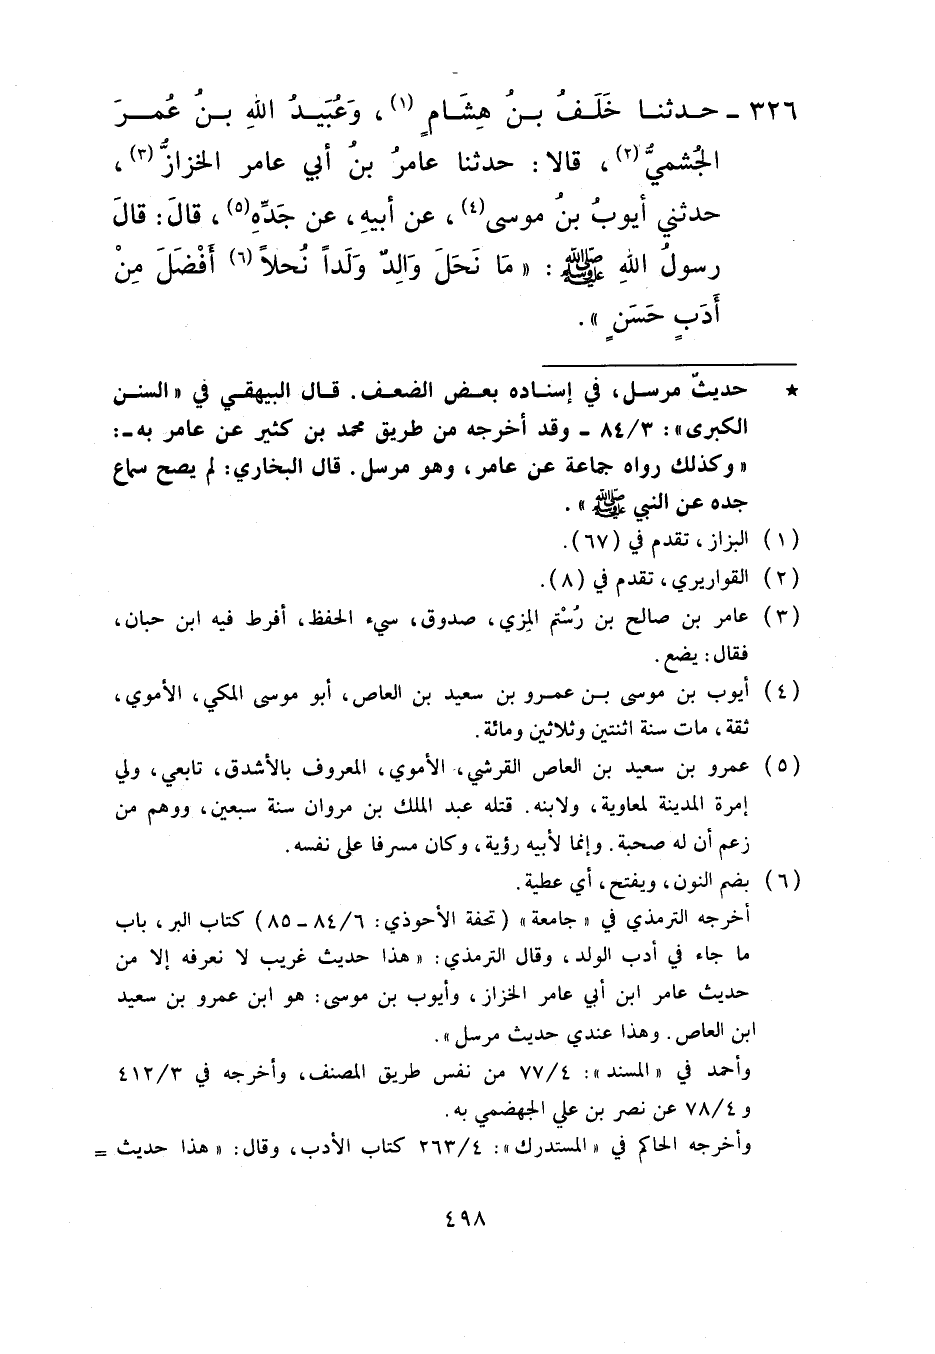 ٣٢٦ ـ حـدثنـا خَلَـفُ بـنُ هِشَـامٍ (١)، وَعُبَيـدُ اللهِ بـنُ عُمـرَ
الجُشميُّ (٢)، قالا: حدثنا عامرُ بنُ أبي عامر الخزازُّ (٣)،
حدثني أيوبُ بنُ موسى (٤)، عن أبيهِ، عن جَدِّهِ (٥)، قالَ: قالَ
رسولُ اللهِ ﷺ: « مَا نَحَلَ وَالِدٌ وَلَداً نُحلاً (٦) أَفْضَلَ مِنْ
أَدَبٍ حَسَنٍ ».
★ حديثٌ مرسل، في إسناده بعض الضعف. قال البيهقي في « السنن
الكبرى »: ٨٤/٣ ـ وقد أخرجه من طريق محمد بن كثير عن عامر به ـ:
« وكذلك رواه جماعة عن عامر، وهو مرسل. قال البخاري: لم يصح سماع
جده عن النبي ﷺ ».
(١) البزاز، تقدم في (٦٧).
(٢) القواريري، تقدم في (٨).
(٣) عامر بن صالح بن رُسْتم المِزي، صدوق، سيء الحفظ، أفرط فيه ابن حبان،
فقال: يضع.
(٤) أيوب بن موسى بـن عمـرو بن سعيد بن العاص، أبو موسى المكي، الأموي،
ثقة، مات سنة اثنتين وثلاثين ومائة.
(٥) عمرو بن سعيد بن العاص القرشي، الأموي، المعروف بالأشدق، تابعي، ولي
إمرة المدينة لمعاوية، ولابنه. قتله عبد الملك بن مروان سنة سبعين، ووهم من
زعم أن له صحبة. وإنما لأبيه رؤية، وكان مسرفا على نفسه.
(٦) بضم النون، ويفتح، أي عطية.
أخرجه الترمذي في « جامعة » (تحفة الأحوذي: ٨٤/٦ ـ ٨٥) كتاب البر، باب
ما جاء في أدب الولد، وقال الترمذي: « هذا حديث غريب لا نعرفه إلا من
حديث عامر ابن أبي عامر الخزاز، وأيوب بن موسى: هو ابن عمرو بن سعيد
ابن العاص. وهذا عندي حديث مرسل ».
وأحمد في « المسند »: ٧٧/٤ من نفس طريق المصنف، وأخرجه في ٤١٢/٣
و ٧٨/٤ عن نصر بن علي الجهضمي به.
وأخرجه الحاكم في « المستدرك »: ٢٦٣/٤ كتاب الأدب، وقال: « هذا حديث =
٤٩٨